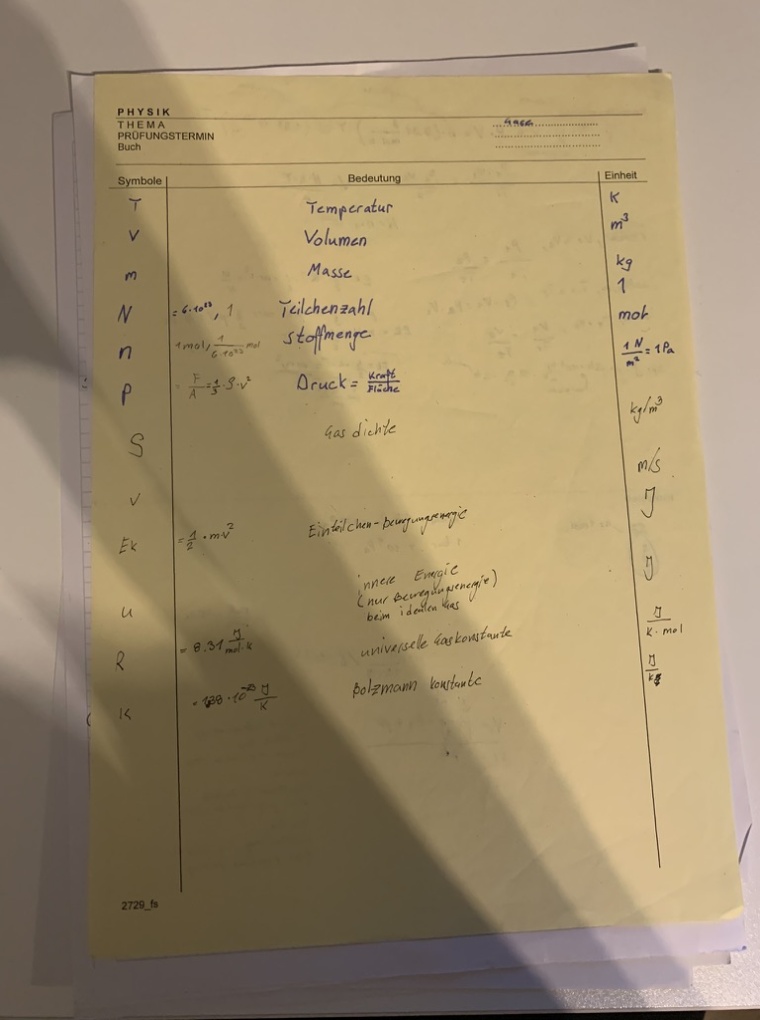 PHYSIK
THEMA Gase
PRÜFUNGSTERMIN
Buch
Symbole Bedeutung Einheit
T Temperatur K
V Volumen m³
m Masse kg
N = 6·10²³, 1 Teilchenzahl 1
n 1mol, 1/6·10²³ mol Stoffmenge mol
P = F/A = 1/3 · S · v² Druck = Kraft/Fläche 1 N/m² = 1 Pa
S Gasdichte kg/m³
v m/s
Ek = 1/2 · m·v² Einteilchen-bewegungsenergie J
u innere Energie J
(nur Bewegungsenergie)
beim idealen Gas
R = 8.31 J/mol·K universelle Gaskonstante J/K·mol
K 10⁻²³ J/K Bolzmann konstante J/K
2729_fs